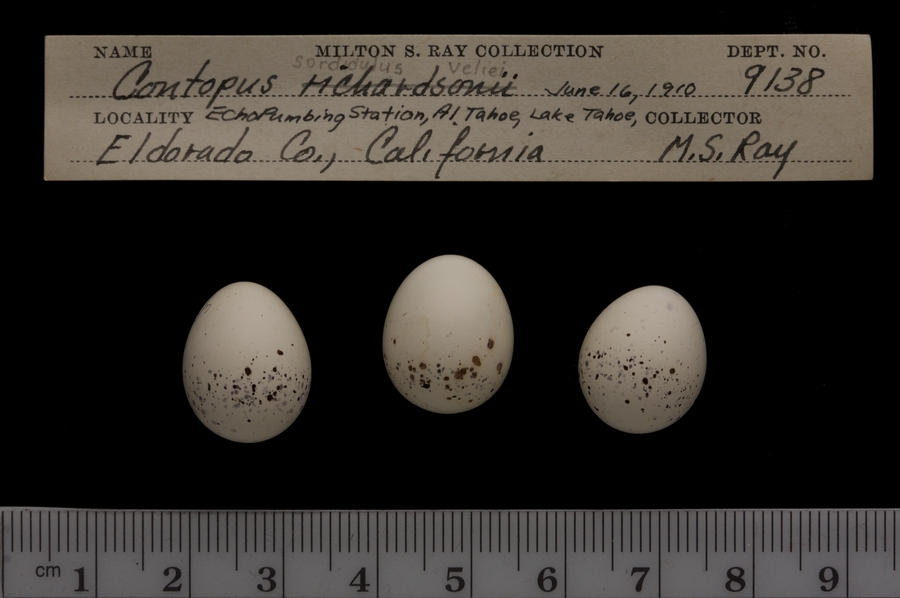 NAME MILTON S. RAY COLLECTION DEPT. NO.
sordidulus veliei
Contopus richardsonii June 16, 1910 9138
LOCALITY Echo Pumbing Station, Al. Tahoe, Lake Tahoe, COLLECTOR
Eldorado Co., California M.S. Ray
cm 1 2 3 4 5 6 7 8 9